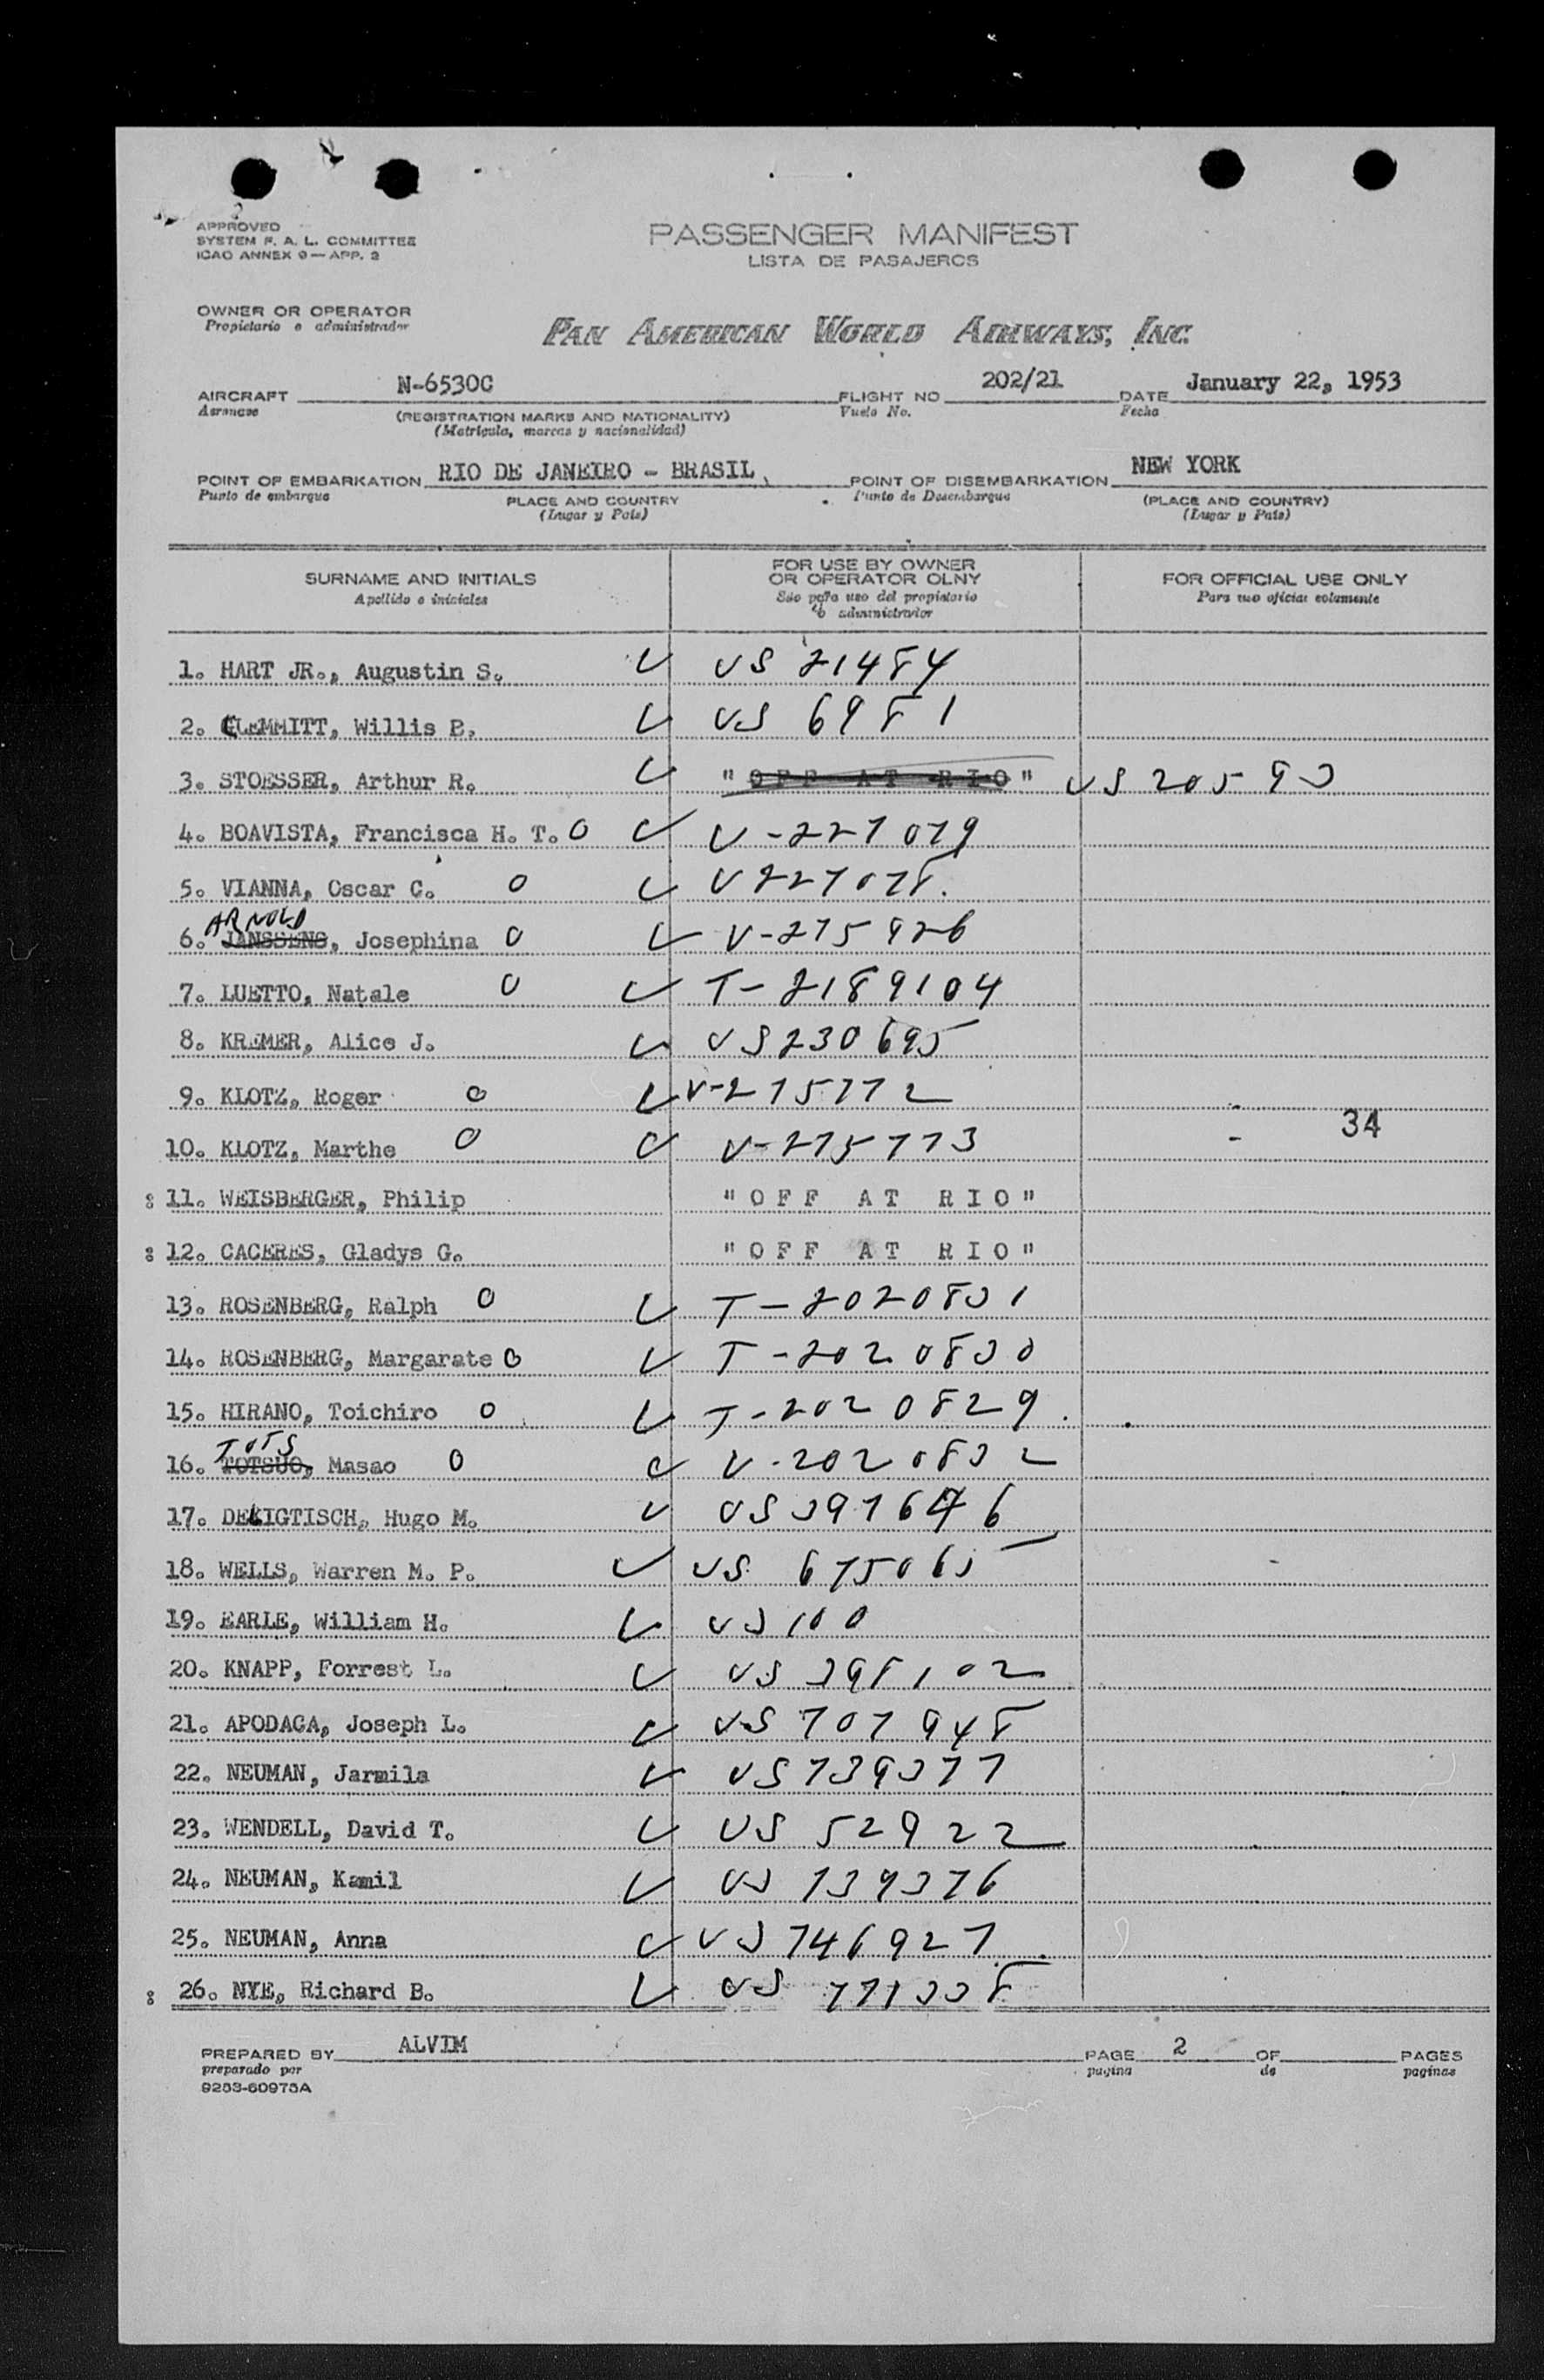 APPROVED
SYSTEM F. A. L. COMMITTEE
ICAO ANNEX 9 — APP. 2
PASSENGER MANIFEST
LISTA DE PASAJEROS
OWNER OR OPERATOR
Propietario o administrador
PAN AMERICAN WORLD AIRWAYS, INC.
AIRCRAFT N-6530C FLIGHT NO 202/21 DATE January 22, 1953
Aeronave (REGISTRATION MARKS AND NATIONALITY) Vuelo No. Fecha
(Matricula, marcas y nacionalidad)
POINT OF EMBARKATION RIO DE JANEIRO - BRASIL POINT OF DISEMBARKATION NEW YORK
Punto de embarque PLACE AND COUNTRY Punto de Desembarque (PLACE AND COUNTRY)
(Lugar y Pais) (Lugar y Pais)
SURNAME AND INITIALS FOR USE BY OWNER OR OPERATOR OLNY FOR OFFICIAL USE ONLY
Apellido e iniciales Sólo para uso del propietario o administrador Para uso oficial solamente
1. HART JR., Augustin S. US 21484
2. CLEMMITT, Willis B. US 6981
3. STOESSER, Arthur R. "OFF AT RIO" US 20593
4. BOAVISTA, Francisca H. T. O V-227079
5. VIANNA, Oscar C. O V227078.
ARNOLD
6. JANSSENS, Josephina O V-275926
7. LUETTO, Natale O T-2189104
8. KREMER, Alice J. US230695
9. KLOTZ, Roger O V-275772
34
10. KLOTZ, Marthe O V-275773
: 11. WEISBERGER, Philip "OFF AT RIO"
: 12. CACERES, Gladys G. "OFF AT RIO"
13. ROSENBERG, Ralph O T-2020831
14. ROSENBERG, Margarate O T-2020830
15. HIRANO, Toichiro O T-2020829.
TOTS
16. TOTSUO, Masao O V-2020832
17. DELIGTISCH, Hugo M. US 397646
18. WELLS, Warren M. P. US 675065
19. EARLE, William H. US 100
20. KNAPP, Forrest L. US 398102
21. APODACA, Joseph L. US 707948
22. NEUMAN, Jarmila US739377
23. WENDELL, David T. US 52922
24. NEUMAN, Kamil US 739376
25. NEUMAN, Anna US 746927
: 26. NYE, Richard B. US 771338
PREPARED BY ALVIM PAGE 2 OF PAGES
preparado por pagina de paginas
9253-60975A